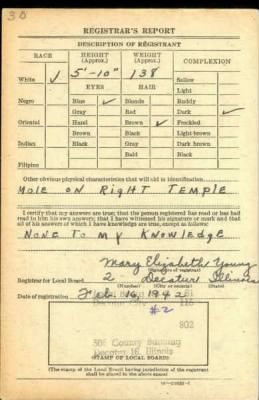 30
REGISTRAR'S REPORT
DESCRIPTION OF REGISTRANT
RACE HEIGHT (Approx.) WEIGHT (Approx.) COMPLEXION
White ✓ 5'-10" 138 Sallow
EYES HAIR Light
Negro Blue ✓ Blonde Ruddy
Gray Red Dark ✓
Oriental Hazel Brown ✓ Freckled
Brown Black Light brown
Indian Black Gray Dark brown
Bald Black
Filipino
Other obvious physical characteristics that will aid in identification
MOLE ON RIGHT TEMPLE
I certify that my answers are true; that the person registered has read or has had
read to him his own answers; that I have witnessed his signature or mark and that
all of his answers of which I have knowledge are true, except as follows:
NONE TO MY KNOWLEDGE
Mary Elizabeth Young
(Signature of registrar)
Registrar for Local Board 2 Decatur Illinois
(Number) (City or county) (State)
Date of registration Feb. 16, 1942
61
115
#2
802
Decator 16, Illinois
(STAMP OF LOCAL BOARD)
(The stamp of the Local Board having jurisdiction of the registrant
shall be placed in the above space)